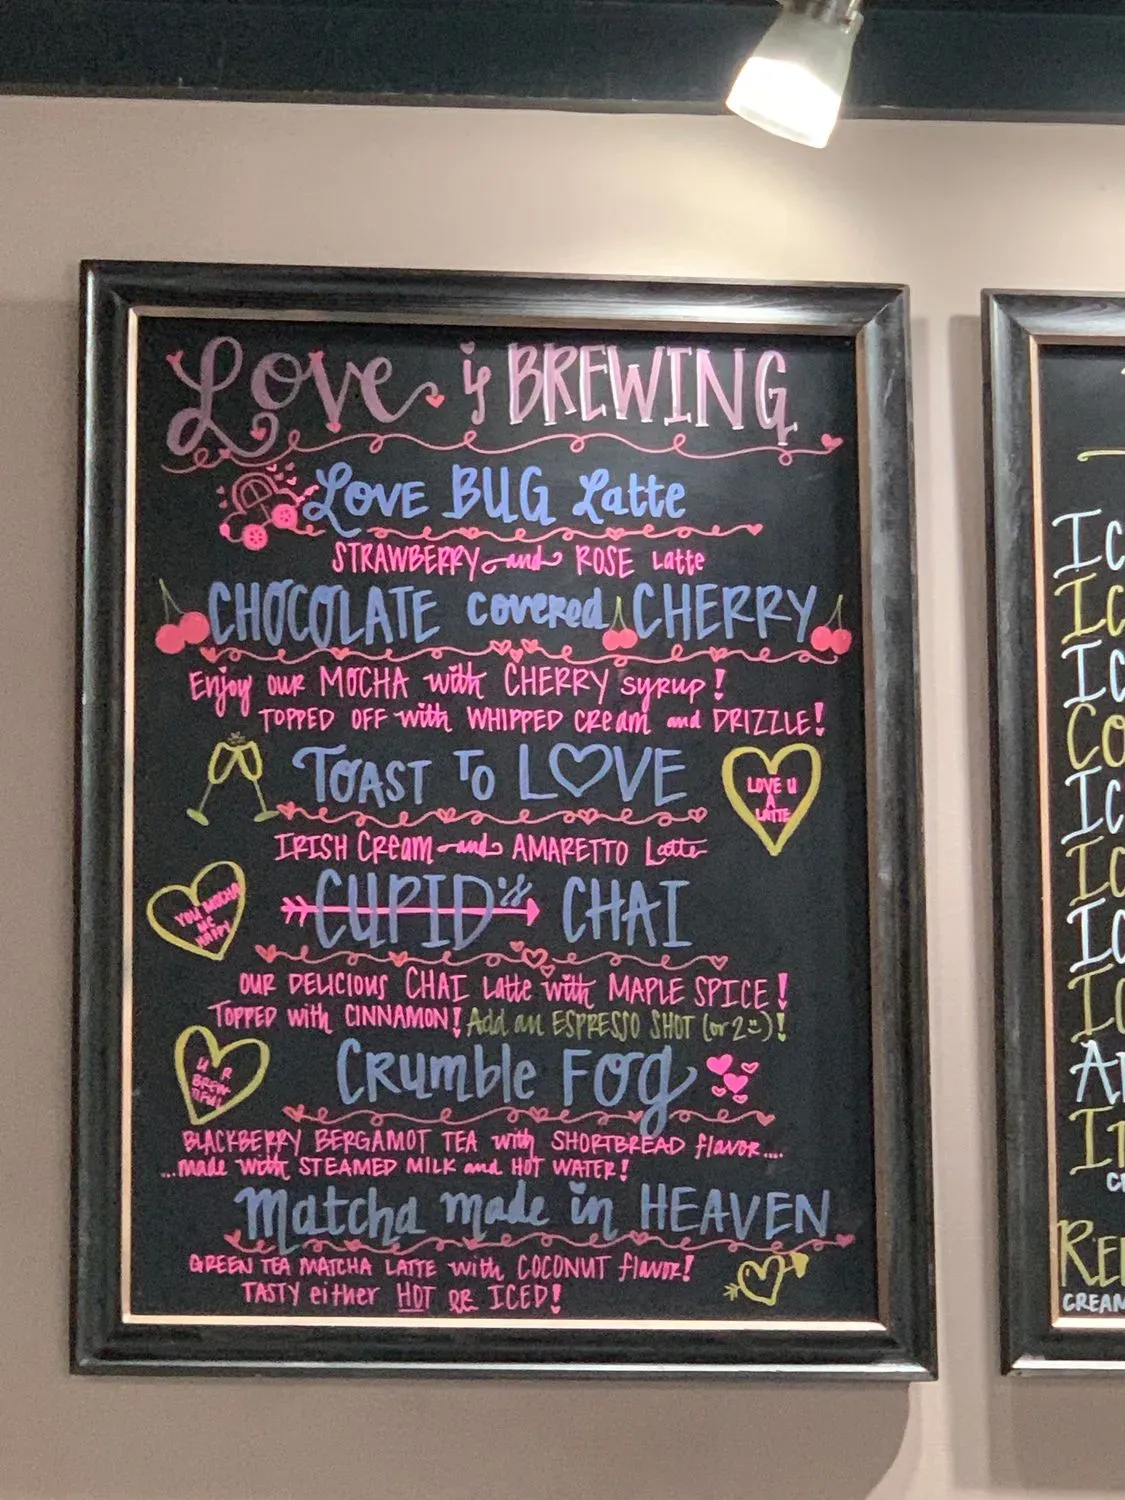 Love is BREWING
Love BUG Latte
STRAWBERRY and ROSE Latte
CHOCOLATE covered CHERRY
Enjoy our MOCHA with CHERRY syrup!
TOPPED OFF with WHIPPED cream and DRIZZLE!
TOAST TO LOVE
LOVE U
A
LATTE
IRISH Cream and AMARETTO Latte
CUPID's CHAI
YOU MOCHA
ME
HAPPY
OUR DELICIOUS CHAI Latte with MAPLE SPICE!
TOPPED with CINNAMON! Add an ESPRESSO SHOT (or 2)!
Crumble FOG
U R
BREW
TIFUL
BLACKBERRY BERGAMOT TEA with SHORTBREAD flavor....
...made with STEAMED MILK and HOT WATER!
Matcha made in HEAVEN
GREEN TEA MATCHA LATTE with COCONUT flavor!
TASTY either HOT OR ICED!
CREAM